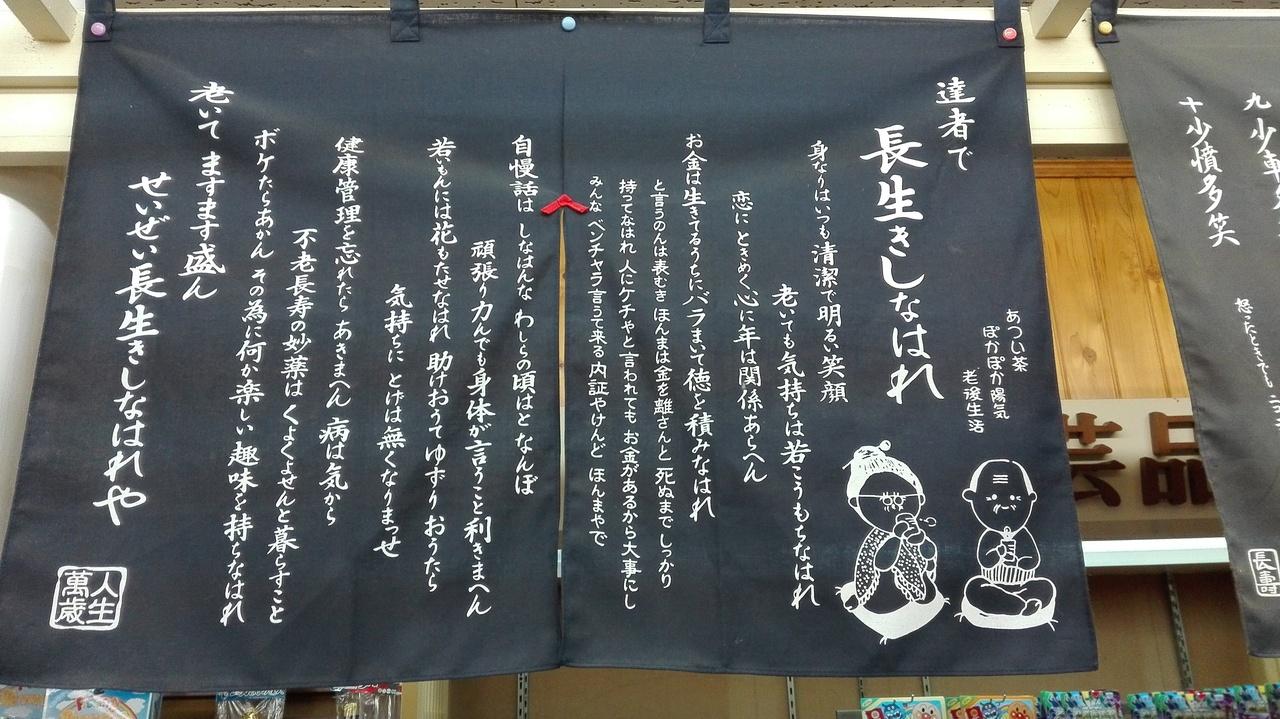 あつい茶
ぽかぽか陽気
老後生活
達者で
長生きしなはれ
身なりはいつも清潔で明るい笑顔
老いても気持ちは若こうもちなはれ
恋にときめく心に年は関係あらへん
お金は生きてるうちにバラまいて徳を積みなはれ
と言うのんは表むき ほんまは金を離さんと 死ぬまでしっかり
持ってなはれ 人にケチやと言われても お金があるから大事にし
みんなベンチャラ言うて来る 内証やけんど ほんまやで
自慢話はしなはんな わしらの頃はとなんぼ
頑張り力んでも身体が言うこと利きまへん
若いもんには花もたせなはれ 助けおうてゆずりおうたら
気持ちに とげは無くなりまっせ
健康管理を忘れたら あきまへん 病は気から
不老長寿の妙薬は くよくよせんと暮らすこと
ボケたらあかん その為に何か楽しい趣味を持ちなはれ
老いて ますます盛ん
せいぜい長生きしなはれや
人生
萬歳
九 少車多
十 少憤多笑
怒ったときでも
長寿
芸品